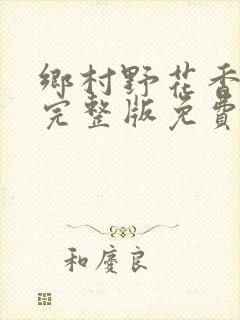 鄉村野花香
完整版免費
和慶良